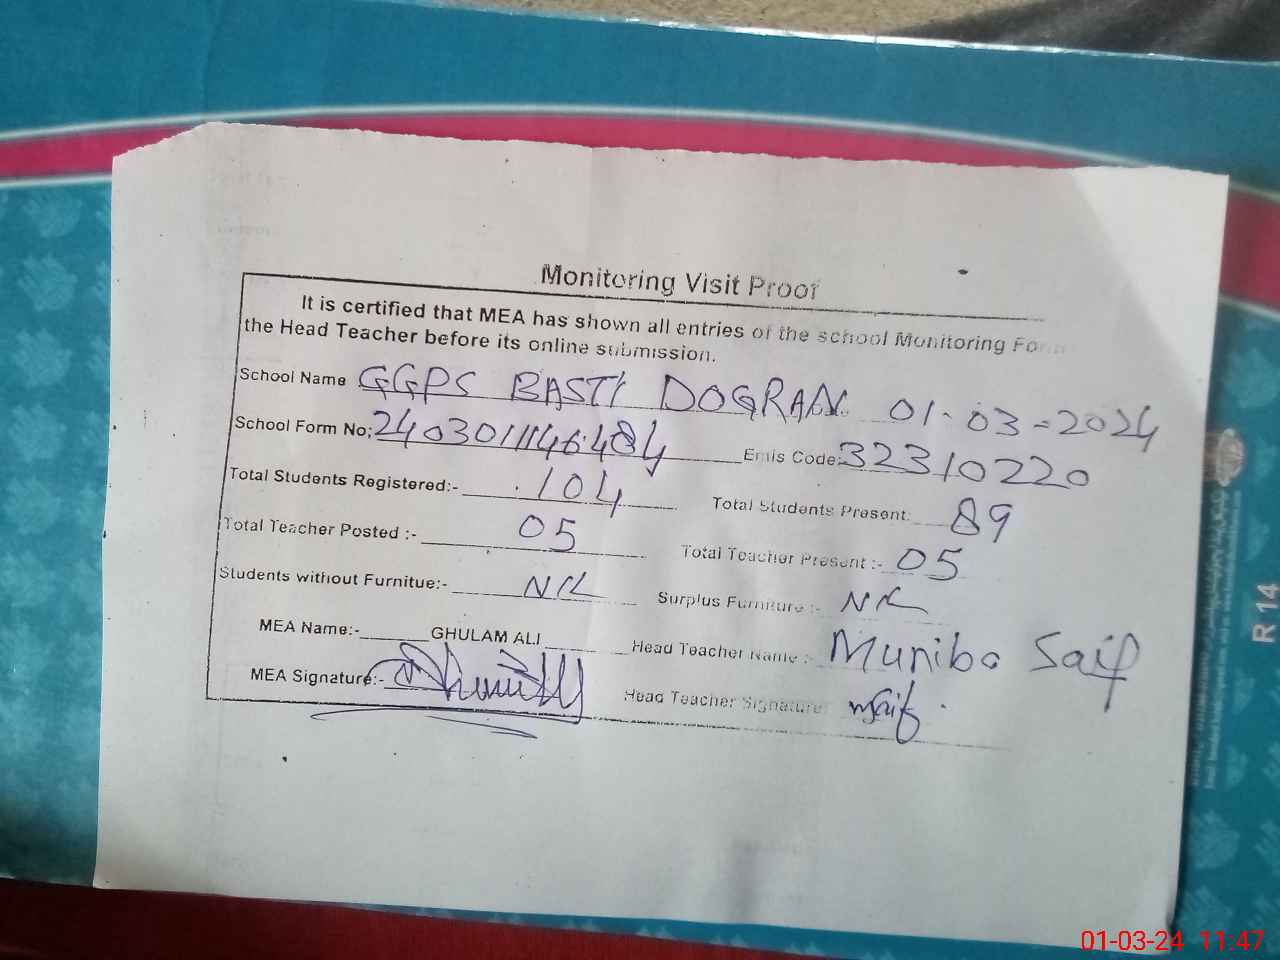 Monitoring Visit Proof
It is certified that MEA has shown all entries of the school Monitoring Form
the Head Teacher before its online submission.
School Name GGPS BASTI DOGRAN 01-03-2024
School Form No: 2403011146484 Emis Code: 32310220
Total Students Registered:- 104 Total Students Present: 89
Total Teacher Posted :- 05 Total Teacher Present :- 05
Students without Furnitue:- NIL Surplus Furniture :- NIL
MEA Name:- GHULAM ALI Head Teacher Name :- Muniba Saif
MEA Signature:- Head Teacher Signature: MSaif
R 14
01-03-24 11:47